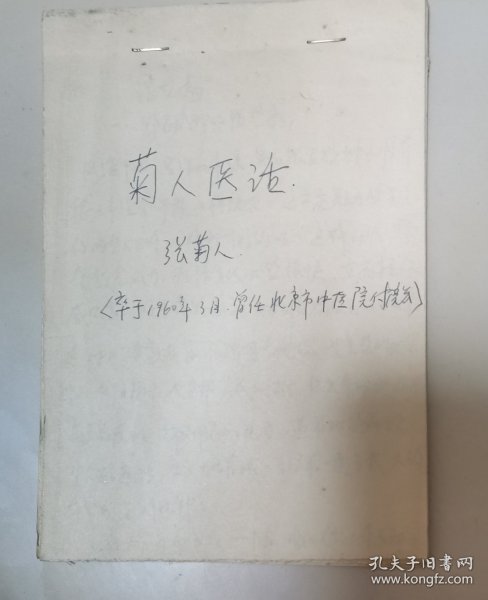 菊人医话.
张菊人.
〈卒于1960年3月.曾任北京市中医院付院长〉
孔夫子旧书网
www.kongfz.com